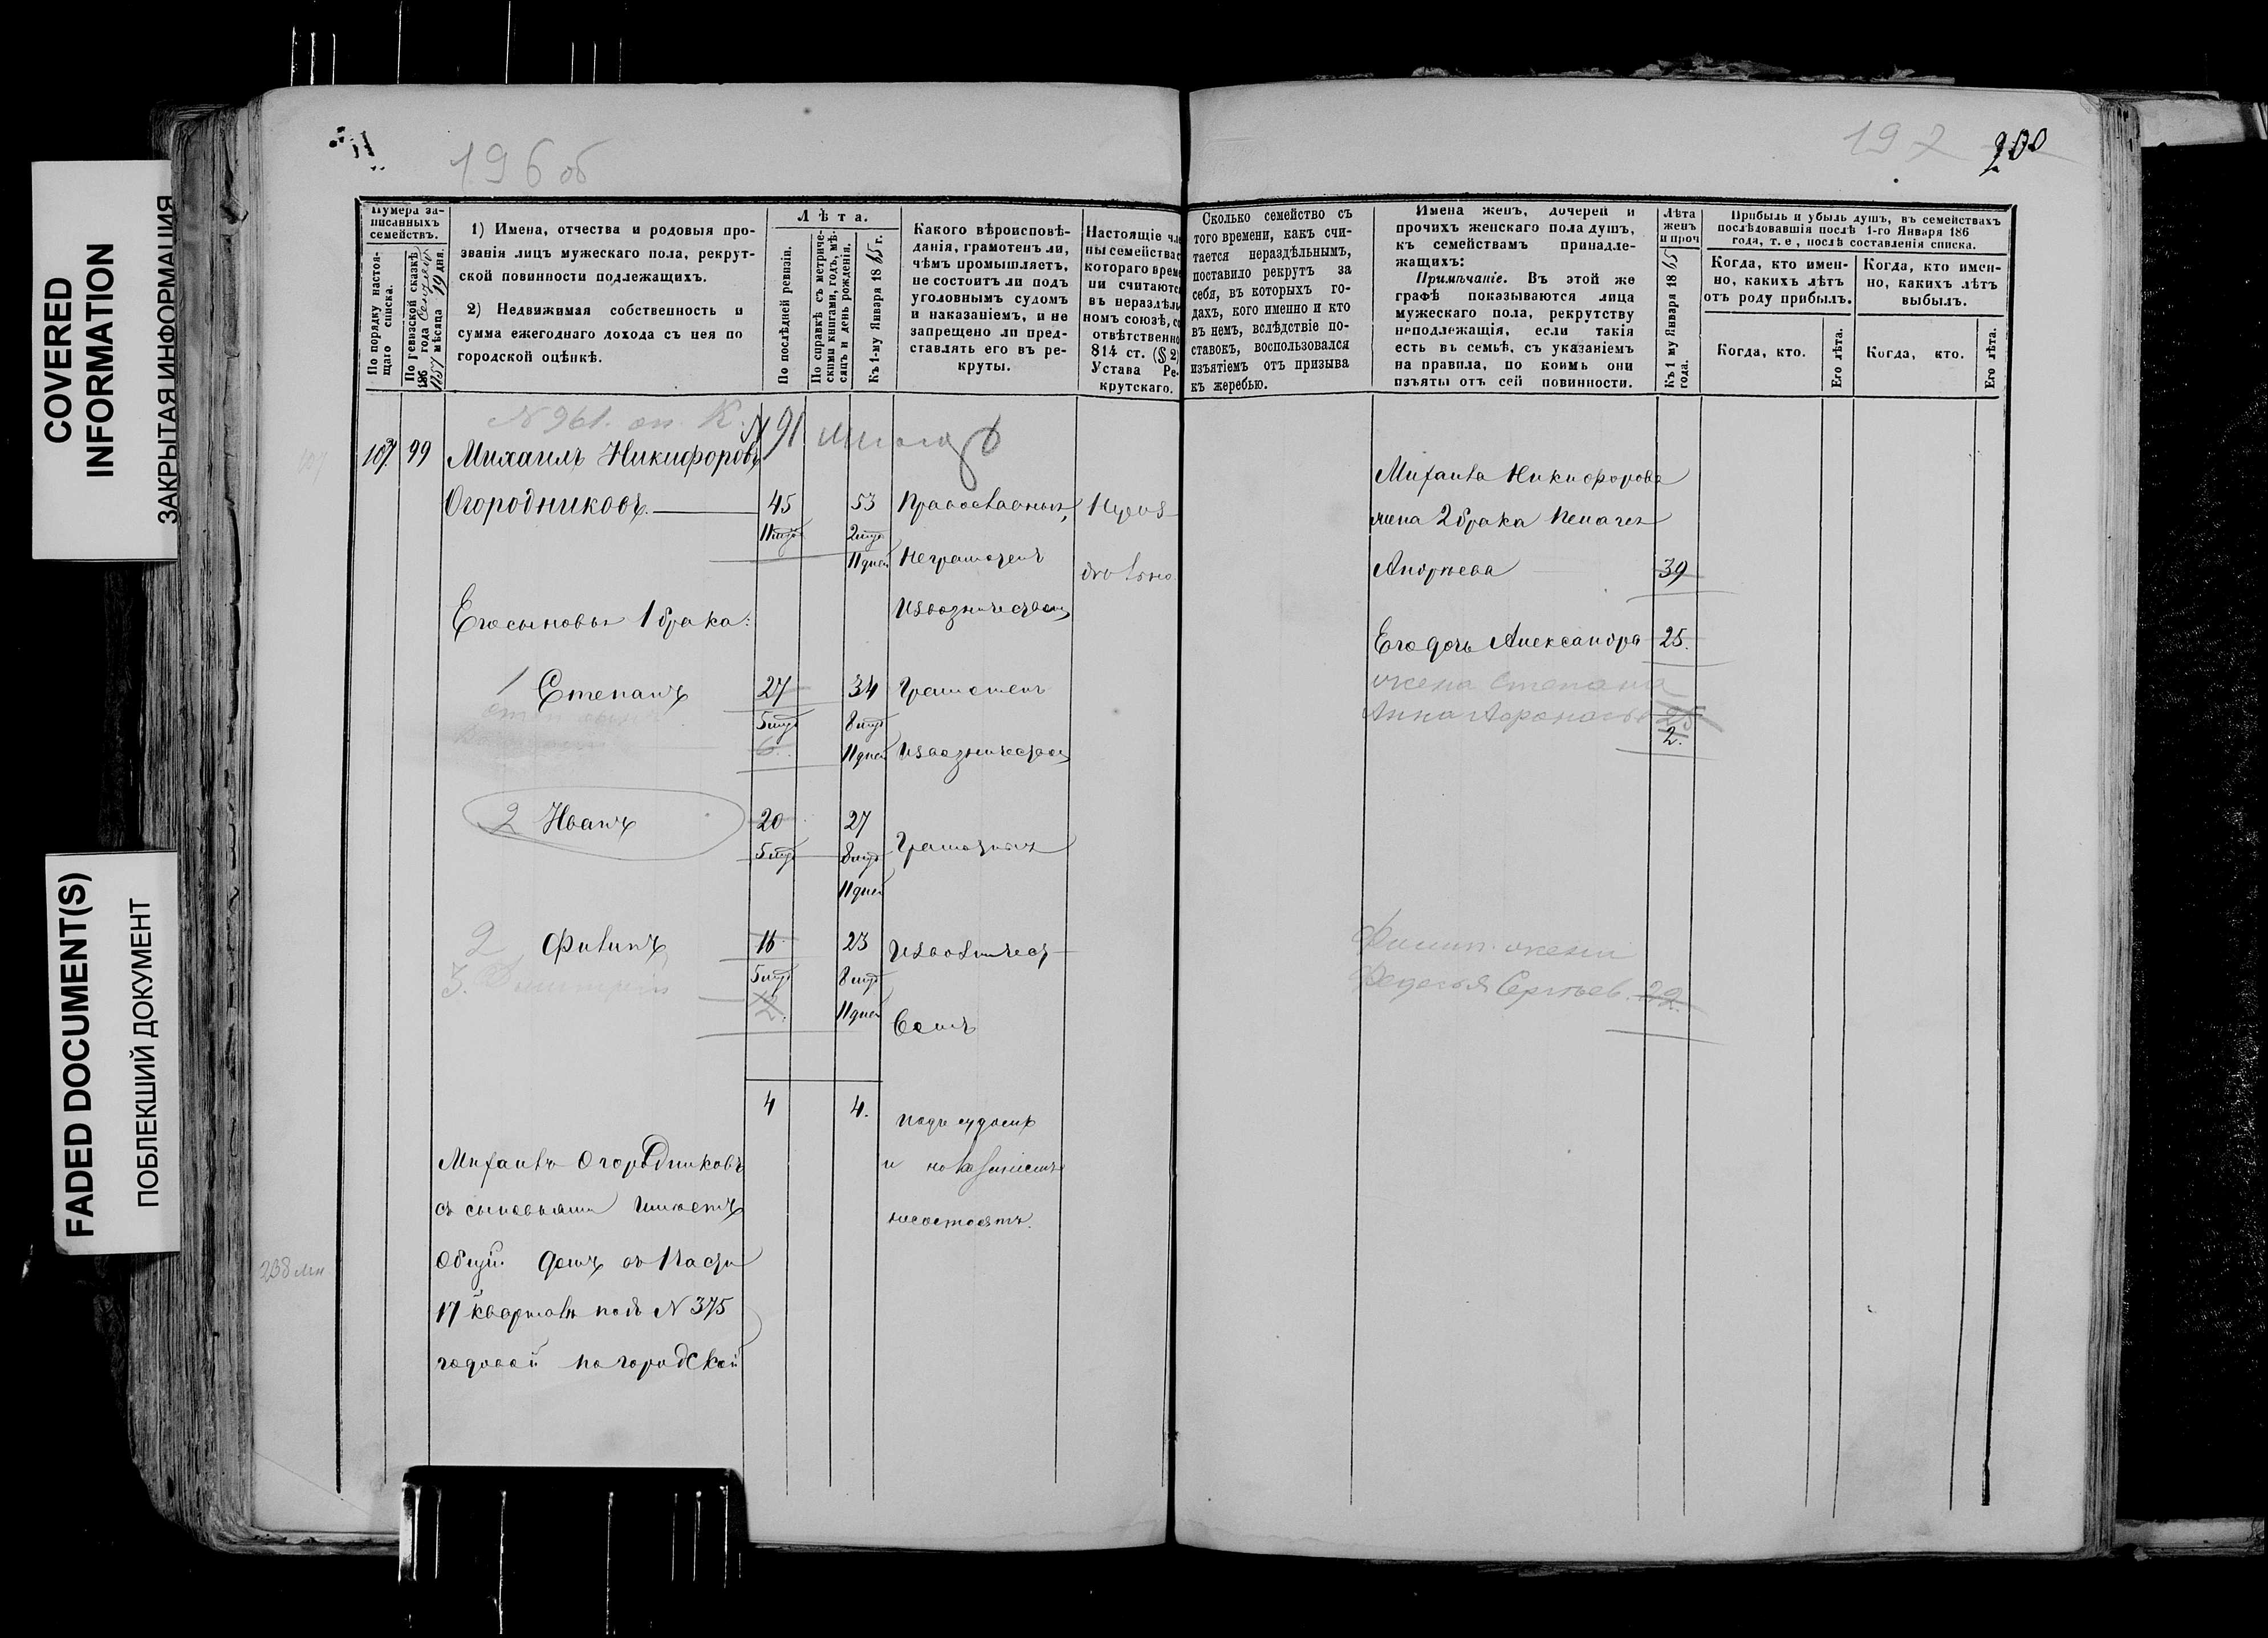 COVERED
INFORMATION
ЗАКРЫТАЯ ИНФОРМАЦИЯ
FADED DOCUMENT(S)
ПОБЛЕКШИЙ ДОКУМЕНТ
196 об
197
200
Нумера за-
писанныхъ
семействъ.
По порядку настоя-
щаго списка.
По ревизской сказкѣ
186 года
1857 мѣсяца 19 дня.
1) Имена, отчества и родовыя про-
званія лицъ мужескаго пола, рекрут-
ской повинности подлежащихъ.
2) Недвижимая собственность и
сумма ежегоднаго дохода съ нея по
городской оцѣнкѣ.
Лѣта.
По послѣдней ревизіи.
По справкѣ съ метриче-
скими книгами, годъ, мѣ-
сяцъ и день рожденія.
Къ 1-му Января 1865 г.
Какого вѣроисповѣ-
данія, грамотенъ ли,
чѣмъ промышляетъ,
не состоитъ ли подъ
уголовнымъ судомъ
и наказаніемъ, и не
запрещено ли пред-
ставлять его въ ре-
круты.
Настоящіе чле
ны семейства с
котораго време
ни считаются
въ нераздѣль
номъ союзѣ, со
отвѣтственно
814 ст. (§ 2)
Устава Ре-
крутскаго.
Сколько семейство съ
того времени, какъ счи-
тается нераздѣльнымъ,
поставило рекрутъ за
себя, въ которыхъ го-
дахъ, кого именно и кто
въ немъ, вслѣдствіе по-
ставокъ, воспользовался
изъятіемъ отъ призыва
къ жеребью.
Имена женъ, дочерей и
прочихъ женскаго пола душъ,
къ семействамъ принадле-
жащихъ:
Примѣчаніе. Въ этой же
графѣ показываются лица
мужескаго пола, рекрутству
неподлежащія, если такія
есть въ семьѣ, съ указаніемъ
на правила, по коимъ они
изъяты отъ сей повинности.
Лѣта
женъ
и проч
Къ 1 му Января 1865
года.
Прибыль и убыль душъ, въ семействахъ
послѣдовавшія послѣ 1-го Января 186
года, т. е, послѣ составленія списка.
Когда, кто имен-
но, какихъ лѣтъ
отъ роду прибылъ.
Когда, кто имен-
но, какихъ лѣтъ
выбылъ.
Когда, кто.
Его лѣта.
Когда, кто.
Его лѣта.
N 961. оп. К.
N 91
107. 99 Михаилъ Никифоровъ
Огородниковъ. 45 53 Православныхъ, Нераз-
Неграмотенъ дѣльно.
11 дней
Его сыновья 1 брака:
Извозничествомъ
1 Степанъ 27 34 Грамотенъ
6. 11 дней Извозничествомъ
2 Иванъ 20 27
Грамотныхъ
11 дней
2 Филипъ 16 23 Извозничест-
3. Дмитрій
12. 11 дней
вомъ
4 4.
подъ судомъ
и наказаніемъ
несостоятъ.
Михаилъ Огородниковъ
съ сыновьями имѣетъ
общій домъ въ 1 части
17 квартала подъ N 375
годовой по городской
Михаила Никифорова
жена 2 брака Пелагея
Андреева 39
Его дочь Александра 25.
жена Степана
Анна Афанась 25
2.
Филип. жена
Федосья Сергѣев. 22.